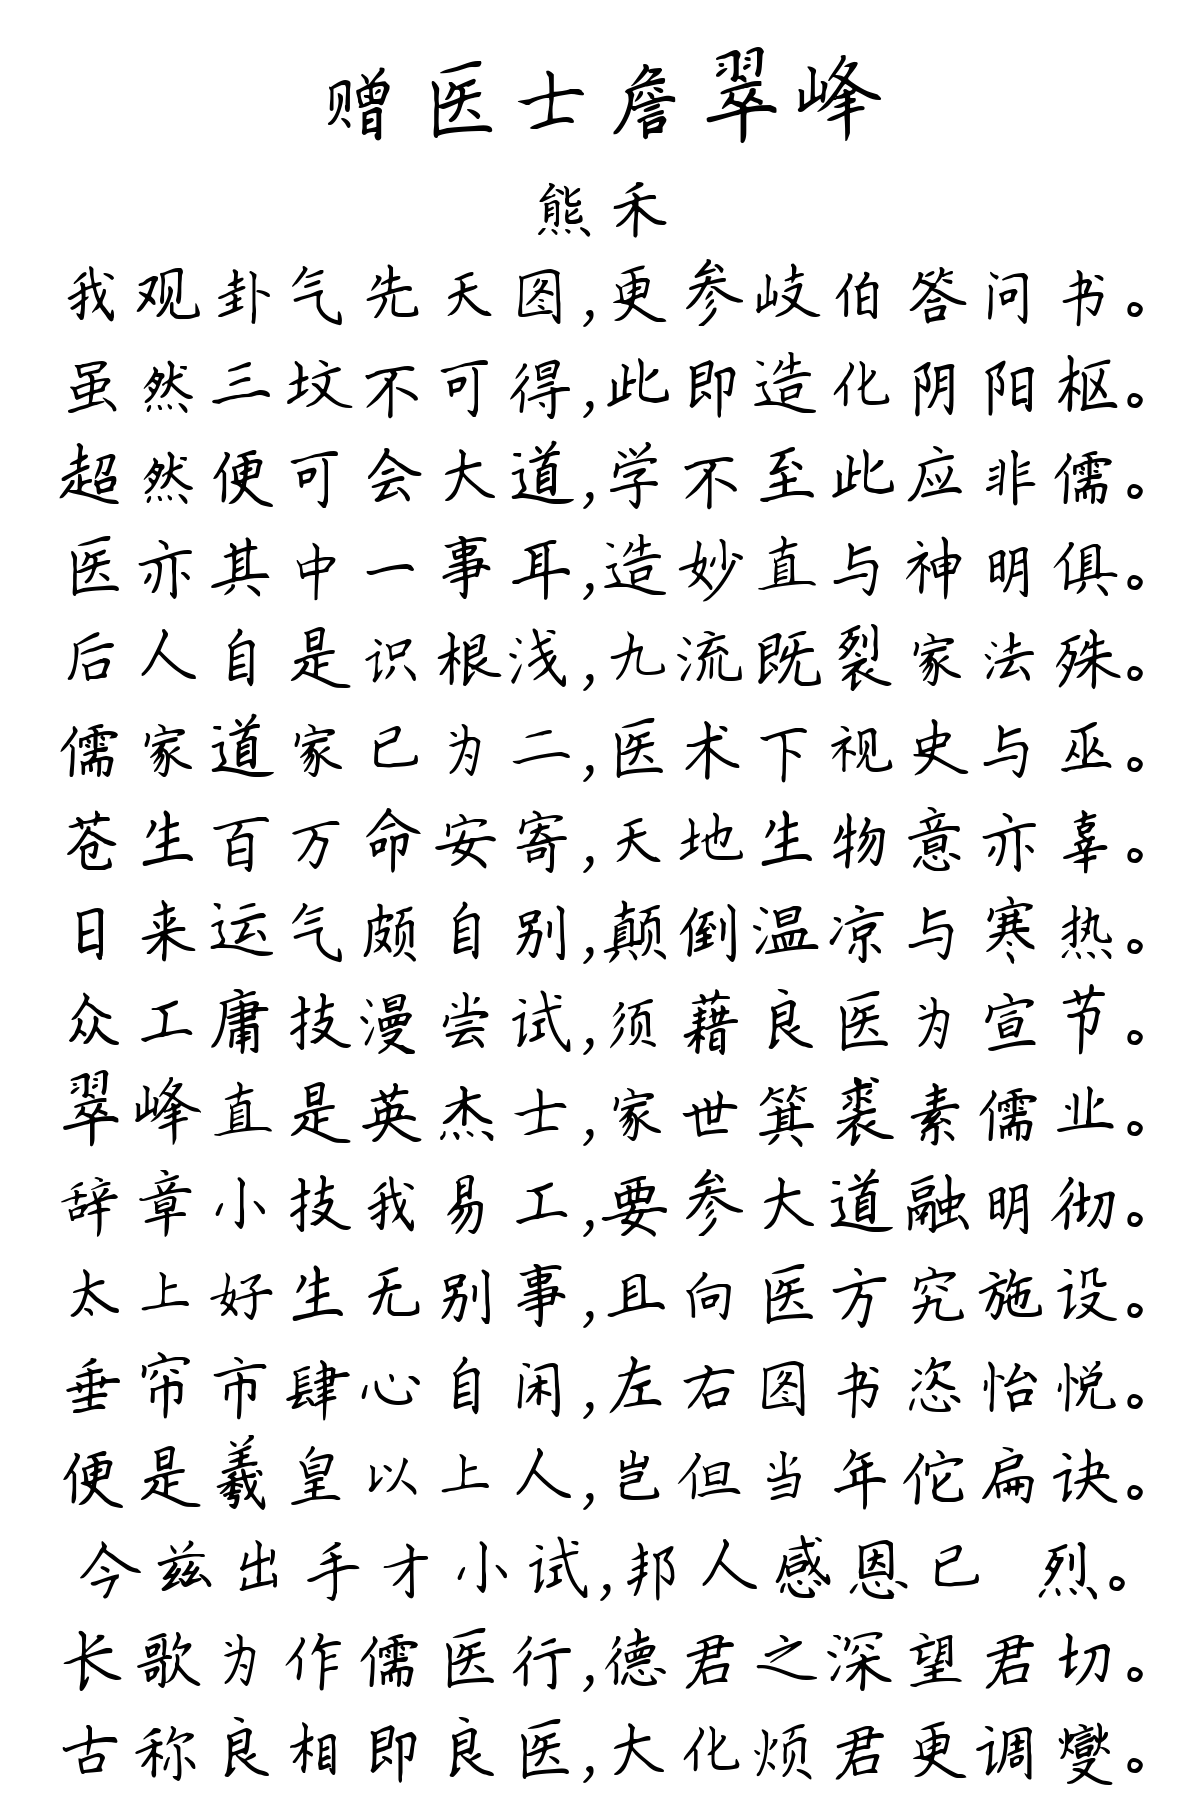 赠医士詹翠峰
熊禾
我观卦气先天图,更参岐伯答问书。
虽然三坟不可得,此即造化阴阳枢。
超然便可会大道,学不至此应非儒。
医亦其中一事耳,造妙直与神明俱。
后人自是识根浅,九流既裂家法殊。
儒家道家已为二,医术下视史与巫。
苍生百万命安寄,天地生物意亦辜。
日来运气颇自别,颠倒温凉与寒热。
众工庸技漫尝试,须藉良医为宣节。
翠峰直是英杰士,家世箕裘素儒业。
辞章小技我易工,要参大道融明彻。
太上好生无别事,且向医方究施设。
垂帘市肆心自闲,左右图书恣怡悦。
便是羲皇以上人,岂但当年佗扁诀。
今兹出手才小试,邦人感恩已 烈。
长歌为作儒医行,德君之深望君切。
古称良相即良医,大化烦君更调燮。